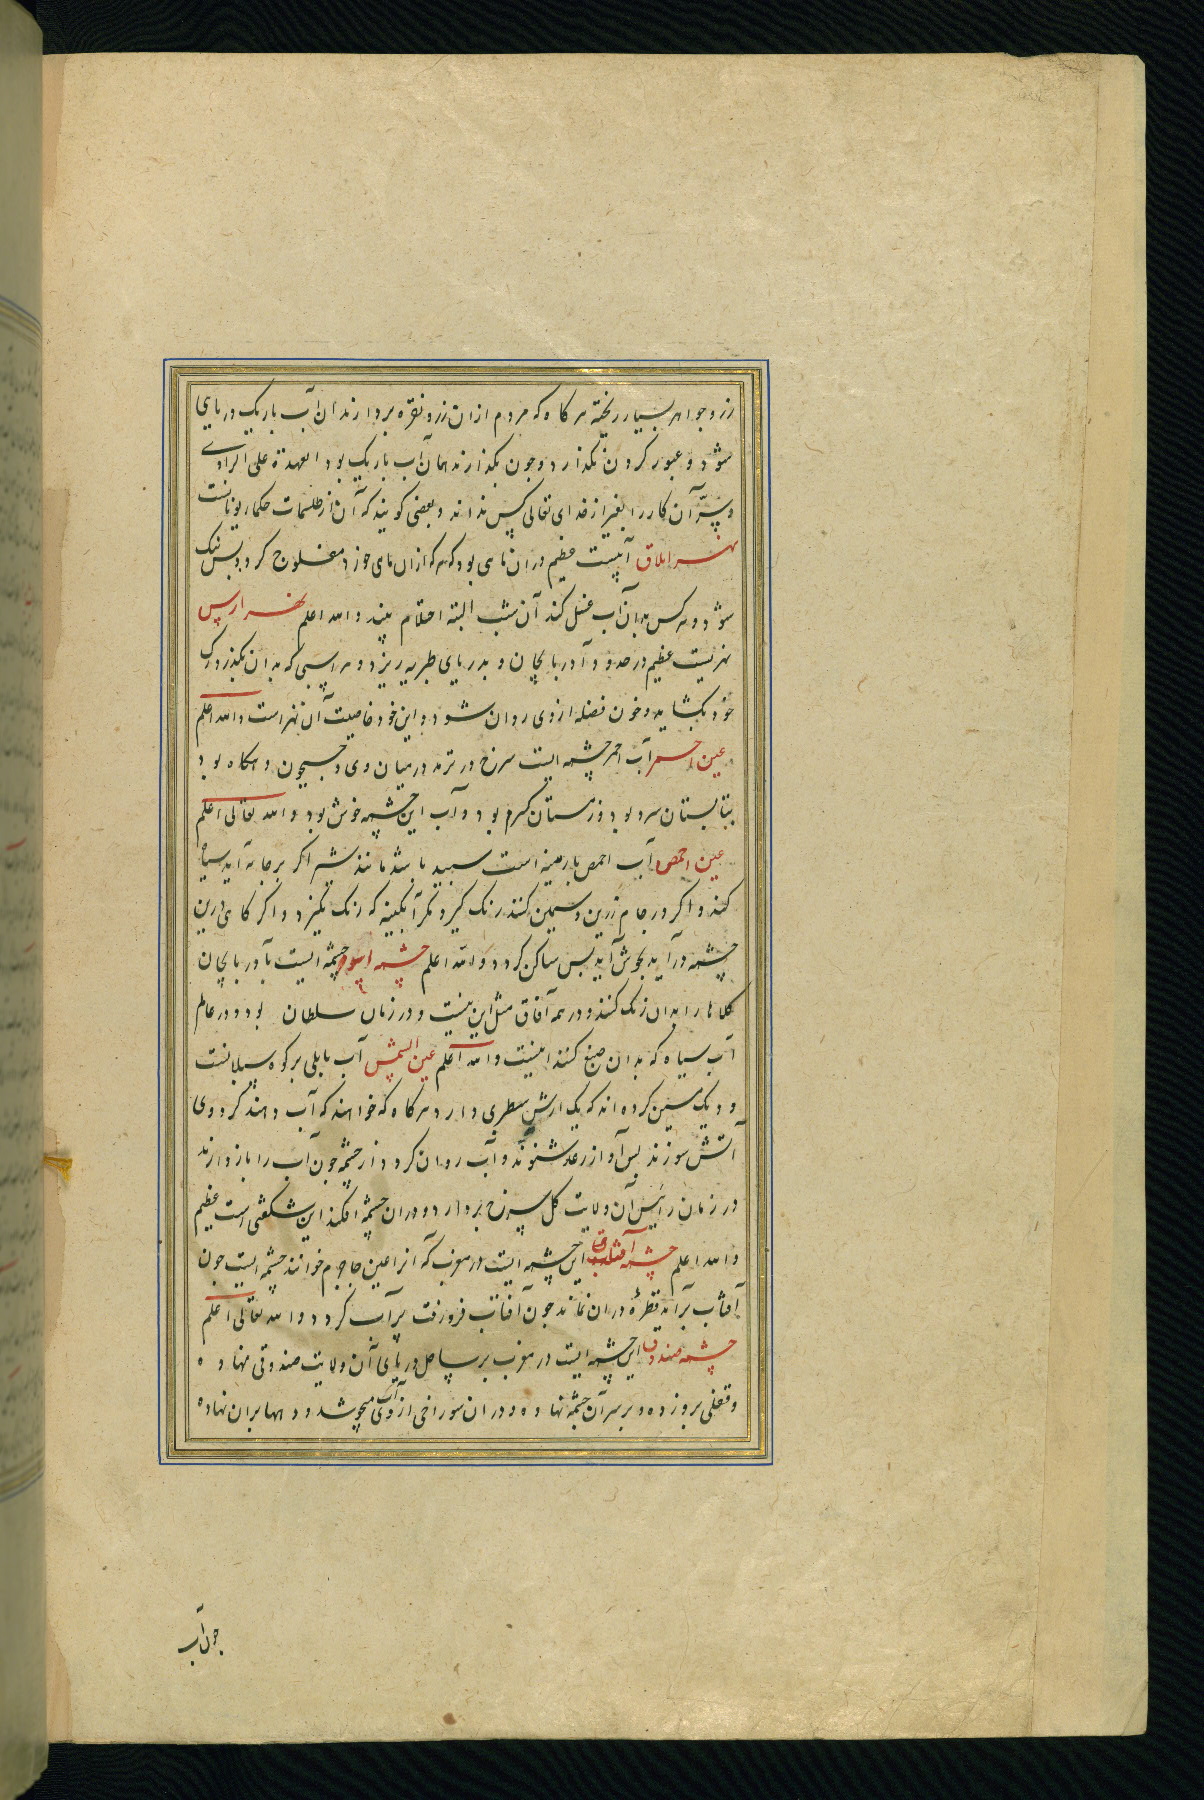 زر و جواهر بسیار ریخته هر کاه که مردم از ان زر و نقره بردارند ان آب باریک دریایی
شود و عبور کردن نکذارد و چون بکذارند همان آب باریک بود العهدة علی الراوی
و سرّ آن کار را بغیر از خدای تعالی کس نداند و بعضی کویند که آن از طلسمات حکماء یونانست
نهر ایلاق آبیست عظیم در ان ماهی بود که هر که از ان ماهی خورد مفلوج کردد پس نیک
شود و هر کس بدان آب غسل کند آن شب البته احتلام بیند و الله اعلم نهر ارس
نهریست عظیم در حدود آدربایجان و بدریای طبریه ریزد و هر اسبی که بدان بکذرد رک
خود بکشاید و خون فضله از وی روان شود و این خود خاصیت آن نهر است و الله اعلم
عین احمر آب احمر چشمه ایست سرخ در ترمد در میان وی و جیحون و هرکاه بود
بتابستان سرد بود و زمستان کرم بود و آب این چشمه خوش بود و الله تعالی اعلم
عین احمص آب احمص بارمینه است سپید باشد مانند شیر اکر بر جامه آید سیاه
کند و اکر در جام زرین و سیمین کنند رنک کیرد مکر آبکینه که رنک نکیرد و اکر کاهی درین
چشمه در آید بجوش آید پس ساکن کردد و الله اعلم چشمه اسود چشمه ایست بآدربایجان
کلاهها را بدان رنک کنند و در همه آفاق مثل این نیست و در زمان سلطان بود و در عالم
آب سیاه که بدان صبغ کنند اینست و الله اعلم عین الشمس آب بابلی بر کوه سبلانست
و دیک سین کرده اند که یک ارش سطبری دارد هر کاه که خواهند که آب دهند کرد وی
آتش سوزند پس آواز رعد شنوند و آب روان کردد از چشمه چون آب را باز دارند
در زمان رئیس آن ولایت کل سرخ بردارد و در ان چشمه افکند این شکفتی است عظیم
و الله اعلم چشمه آفتاب این چشمه ایست در مغرب که انرا عین جاجرم خوانند چشمه ایست چون
آفتاب برآید قطرهٔ در ان نماند چون آفتاب فرو رفت پر آب کردد و الله تعالی اعلم
چشمه صندوق این چشمه ایست در مغرب بر ساحل دریای آن ولایت صندوقی نهاده
و قفلی بر و زده و بر سر آن چشمه نهاده و در ان سوراخی از وی آب میجوشد و دهها بران نهاده
چون آب